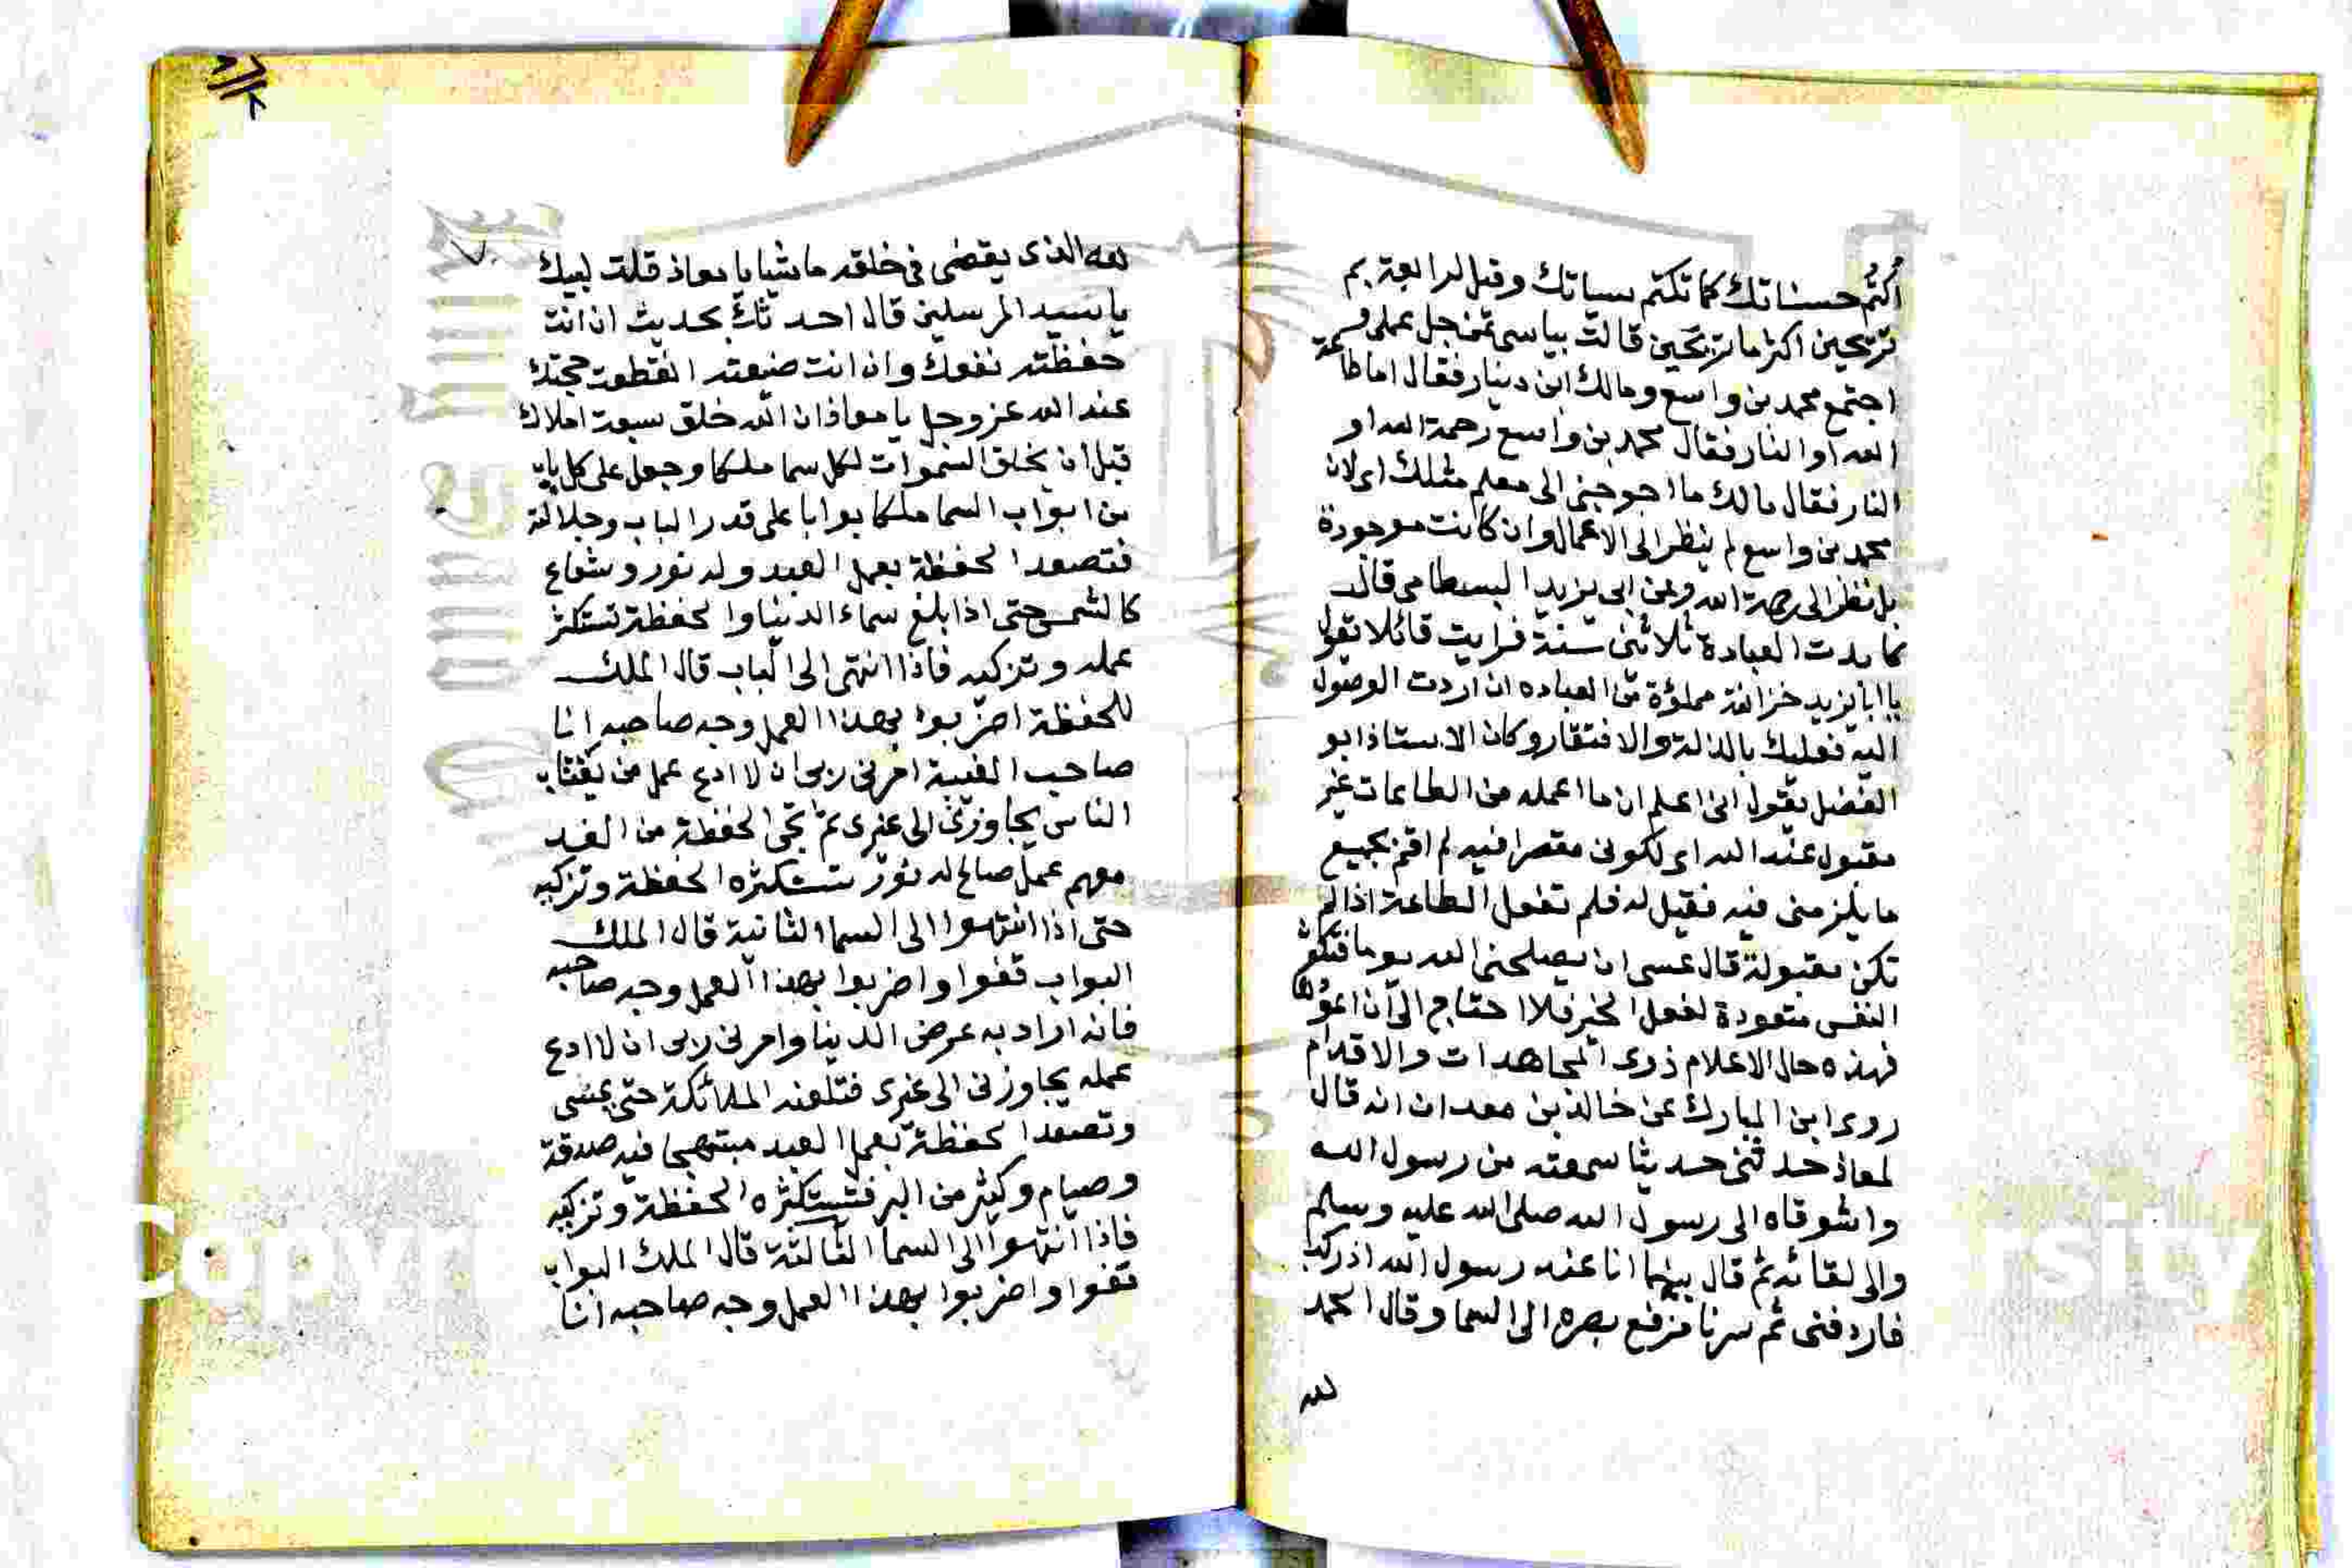 اكتم حسناتك كما تكتم سياتك وقيل لرابعة بم
ترتجين اكثر ما ترتجين قالت بياسي من جل عملي و
اجتمع محمد بن واسع ومالك ابن دينار فقال اما طاعة
الله او النار فقال محمد بن واسع رحمة الله او
النار فقال مالك ما احوجني الى معلم مثلك اي لان
محمد بن واسع لم ينظر الى الاعمال وان كانت موجودة
بل نظر الى رحمة الله وعن ابي يزيد البسطامي قال
كابدت العبادة ثلاثين سنة فرايت قائلا يقول
يا ابا يزيد خزائنه مملؤة من العباده ان اردت الوصول
اليه فعليك بالذلة والافتقار وكان الاستاذ ابو
الفضل يقول اني اعلم ان ما اعمله من الطاعات غير
مقبول عند الله اي لكوني مقصرا فيه لم اقم بجميع
ما يلزمني فيه فقيل له فلم تفعل الطاعة اذا لم
تكن مقبولة قال عسى ان يصلحني الله يوما فتكون
النفس متعودة لفعل الخير فلا احتاج الى ان اعودها
فهذه حال الاعلام ذوي المجاهدات والاقدام
روى ابن المبارك عن خالد بن معدان انه قال
لمعاذ حدثني حديثا سمعته من رسول الله
واشوقاه الى رسول الله صلى الله عليه وسلم
والى لقائه ثم قال بينما انا عند رسول الله اذ ركب
فاردفني ثم سرنا فرفع بصره الى السما وقال الحمد
لله
٧
لله الذي يقضي في خلقه ما يشا يا معاذ قلت لبيك
يا سيد المرسلين قال احدثك بحديث ان انت
حفظته نفعك وان انت ضيعته انقطعت حجتك
عند الله عز وجل يا معاذ ان الله خلق سبعة املاك
قبل ان يخلق السموات لكل سما ملكا وجعل على كل باب
من ابواب السما ملكا بوابا على قدر الباب وجلالته
فتصعد الحفظة بعمل العبد وله نور وشعاع
كالشمس حتى اذا بلغ سماء الدنيا والحفظة تستكثر
عمله وتزكيه فاذا انتهى الى الباب قال الملك
للحفظة اضربوا بهذا العمل وجه صاحبه انا
صاحب الغيبة امرني ربي ان لا ادع عمل من يغتاب
الناس يجاوزني الى غيري ثم تجئ الحفظة من الغد
معهم عمل صالح له نور تستكثره الحفظة وتزكيه
حتى اذا انتهوا الى السما الثانية قال الملك
البواب قفوا واضربوا بهذا العمل وجه صاحبه
فانه اراد به عرض الدنيا وامرني ربي ان لا ادع
عمله يجاوزني الى غيري فتلعنه الملائكة حتى يمسي
وتصعد الحفظة بعمل العبد مبتهجا فيه صدقة
وصيام وكثير من البر فتستكثره الحفظة وتزكيه
فاذا انتهوا الى السما الثالثة قال الملك البواب
قفوا واضربوا بهذا العمل وجه صاحبه انا